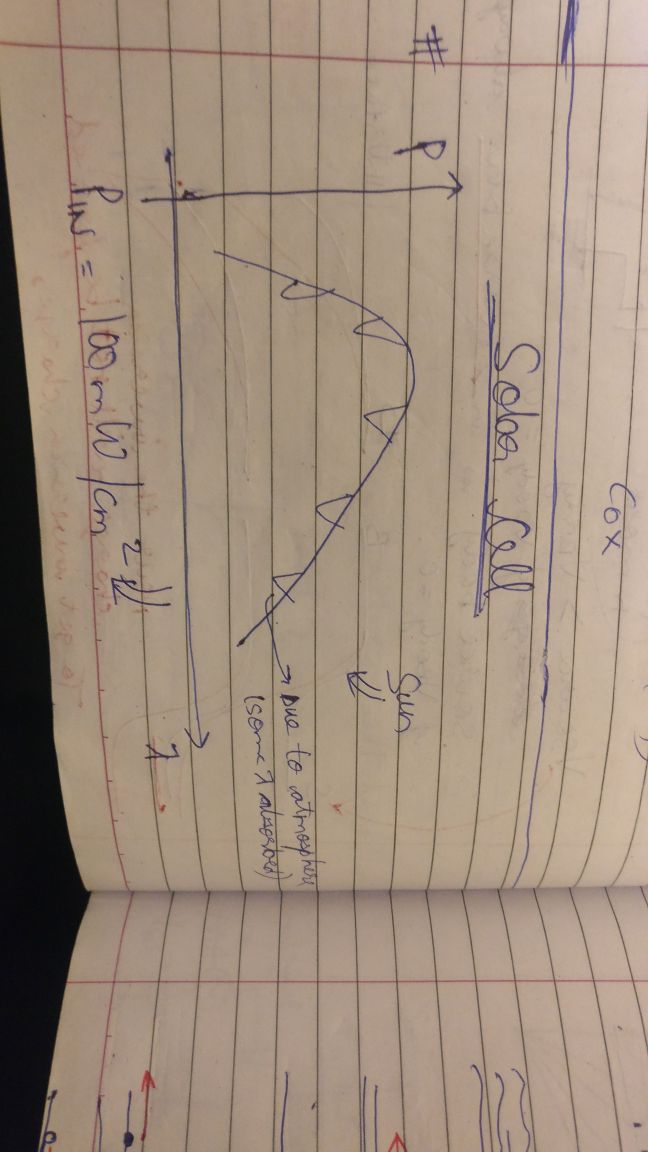 Cox
Solar Cell
#
P
Sun
→ Due to atmosphere
(some λ absorbed)
λ
PIN = 100 mW/cm²